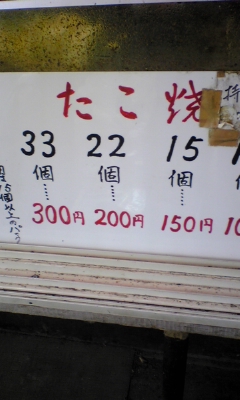 たこ焼
33個……300円
22個……200円
15個……150円
15個以上のパック